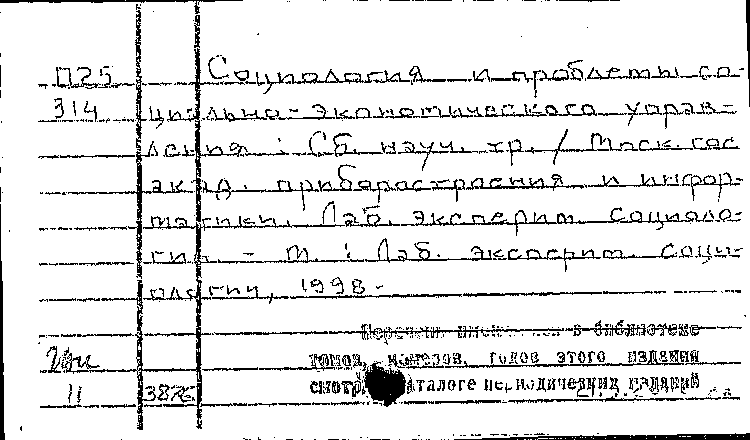 П25 Социология и проблемы со-
314 циально-экономического управ-
ления : Сб. науч. тр. / Моск. гос.
акад. приборостроения и инфор-
матики. Лаб. эксперим. социоло-
гии. - М. : Лаб. эксперим. соци-
ологии, 1998 -
Перечень имеющихся в библиотеке
томов, номеров, годов этого издания
смотри каталоге периодических изданий
11 387